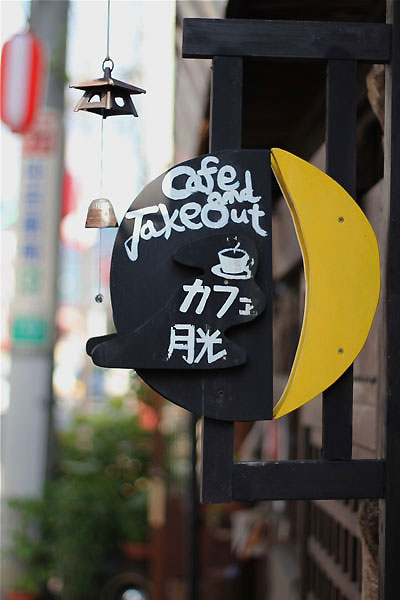 Cafe and
Takeout
カフェ
月光